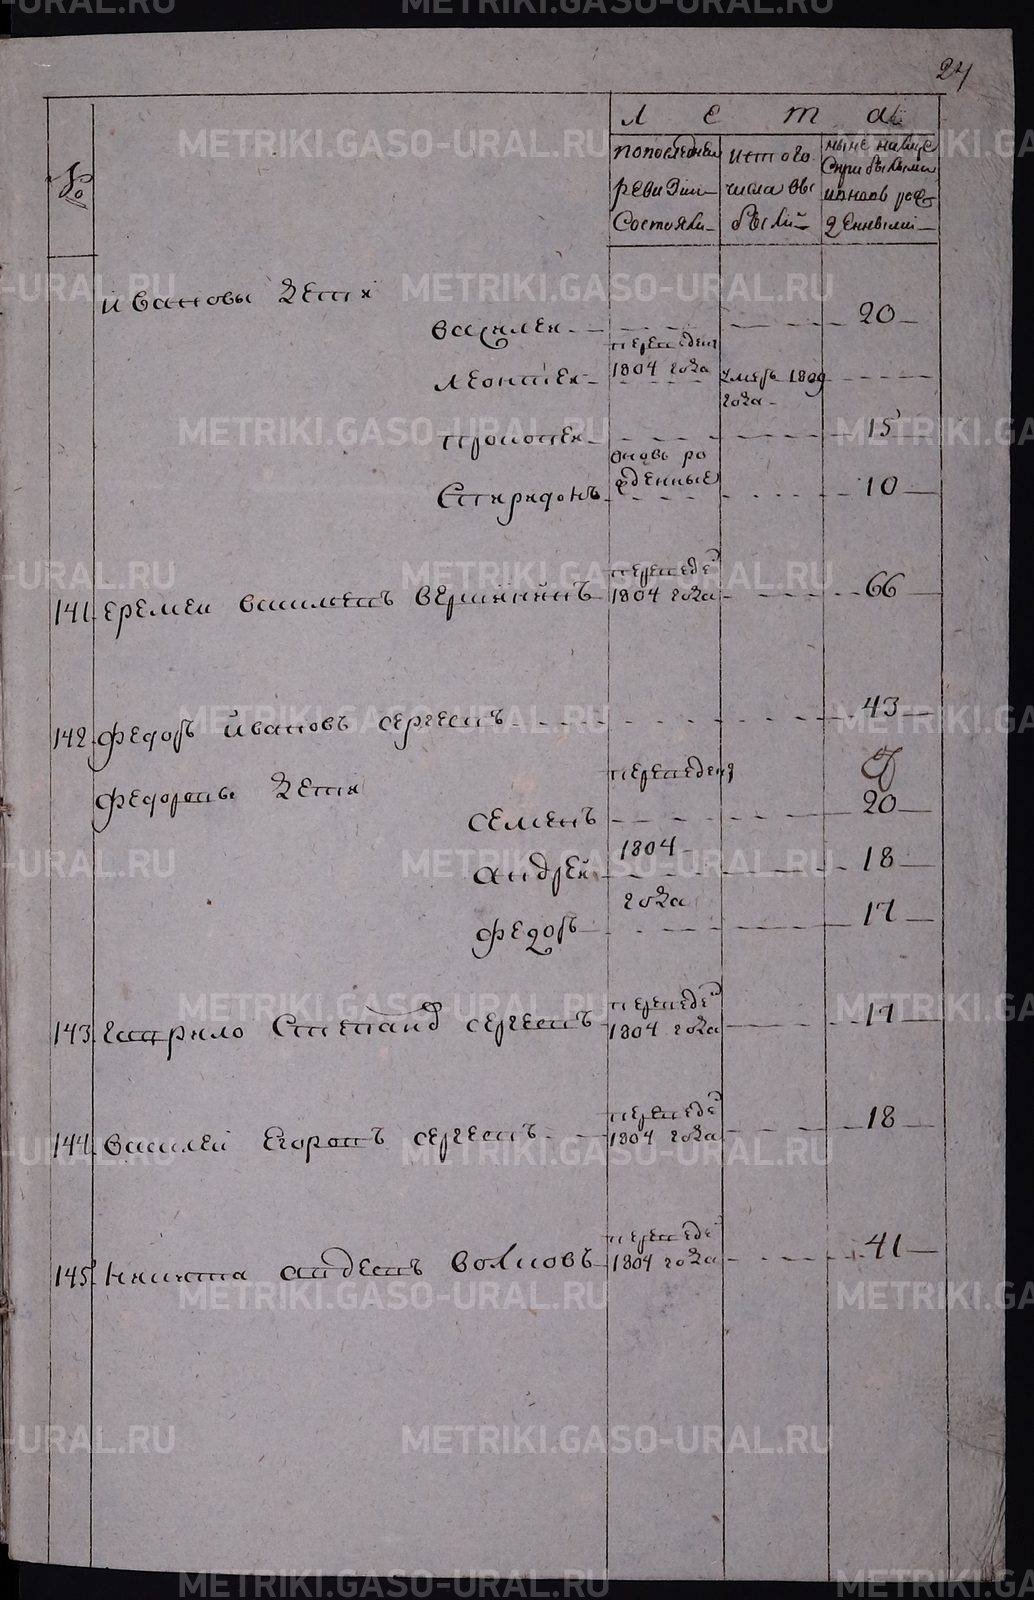 24
№
Лета
по последней ревизии состояли
ис того числа выбылий
ныне налице с прибылыми и вновь рожденными
Ивановы дети
Василей 20
переведен 1804 года
Леонтей умер 1809 года
Прокопей 15
вновь рожденные
Спиридонъ 10
141 Еремеи Васильевъ Вершининъ переведе 1804 года 66
142 Федоръ Ивановъ Сергеевъ 43
Федоровы дети переведены
Семенъ 20
Андрей 1804 18
Федоръ года 17
143 Гаврило Степанов Сергеевъ переведе 1804 года 17
144 Василей Егоровъ Сергеевъ переведе 1804 года 18
145 Никита Волковъ переведе 1804 года 41
METRIKI.GASO-URAL.RU